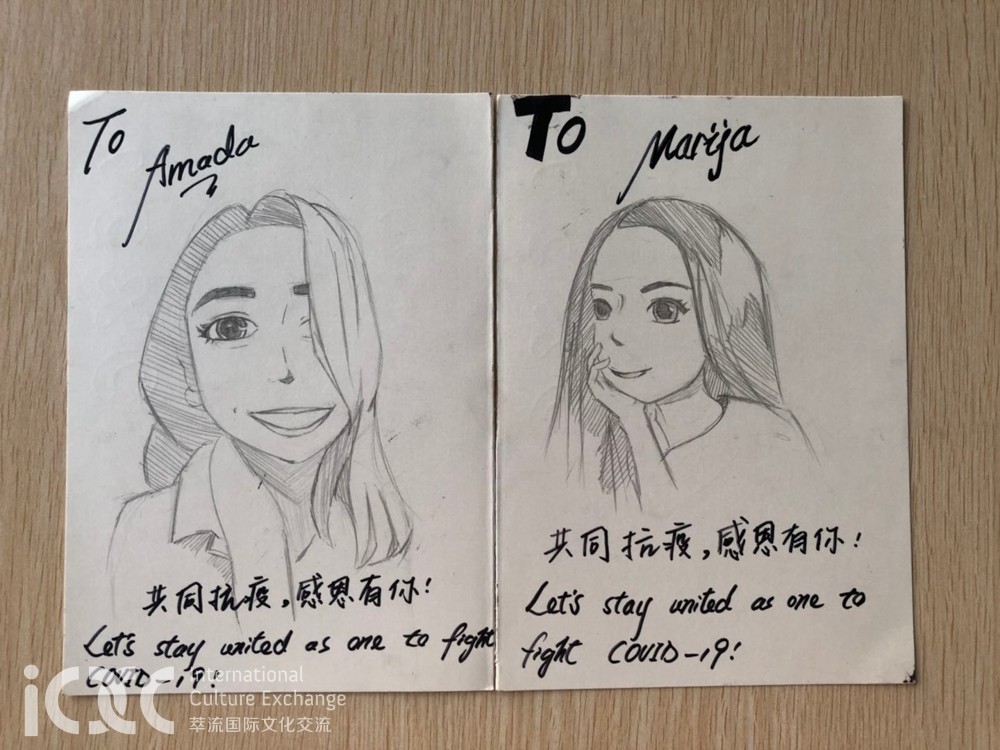 To
Amada
共同抗疫，感恩有你！
Let's stay united as one to fight
COVID-19!
To
Marija
共同抗疫，感恩有你！
Let's stay united as one to
fight COVID-19!
icec
International
Culture Exchange
萃流国际文化交流